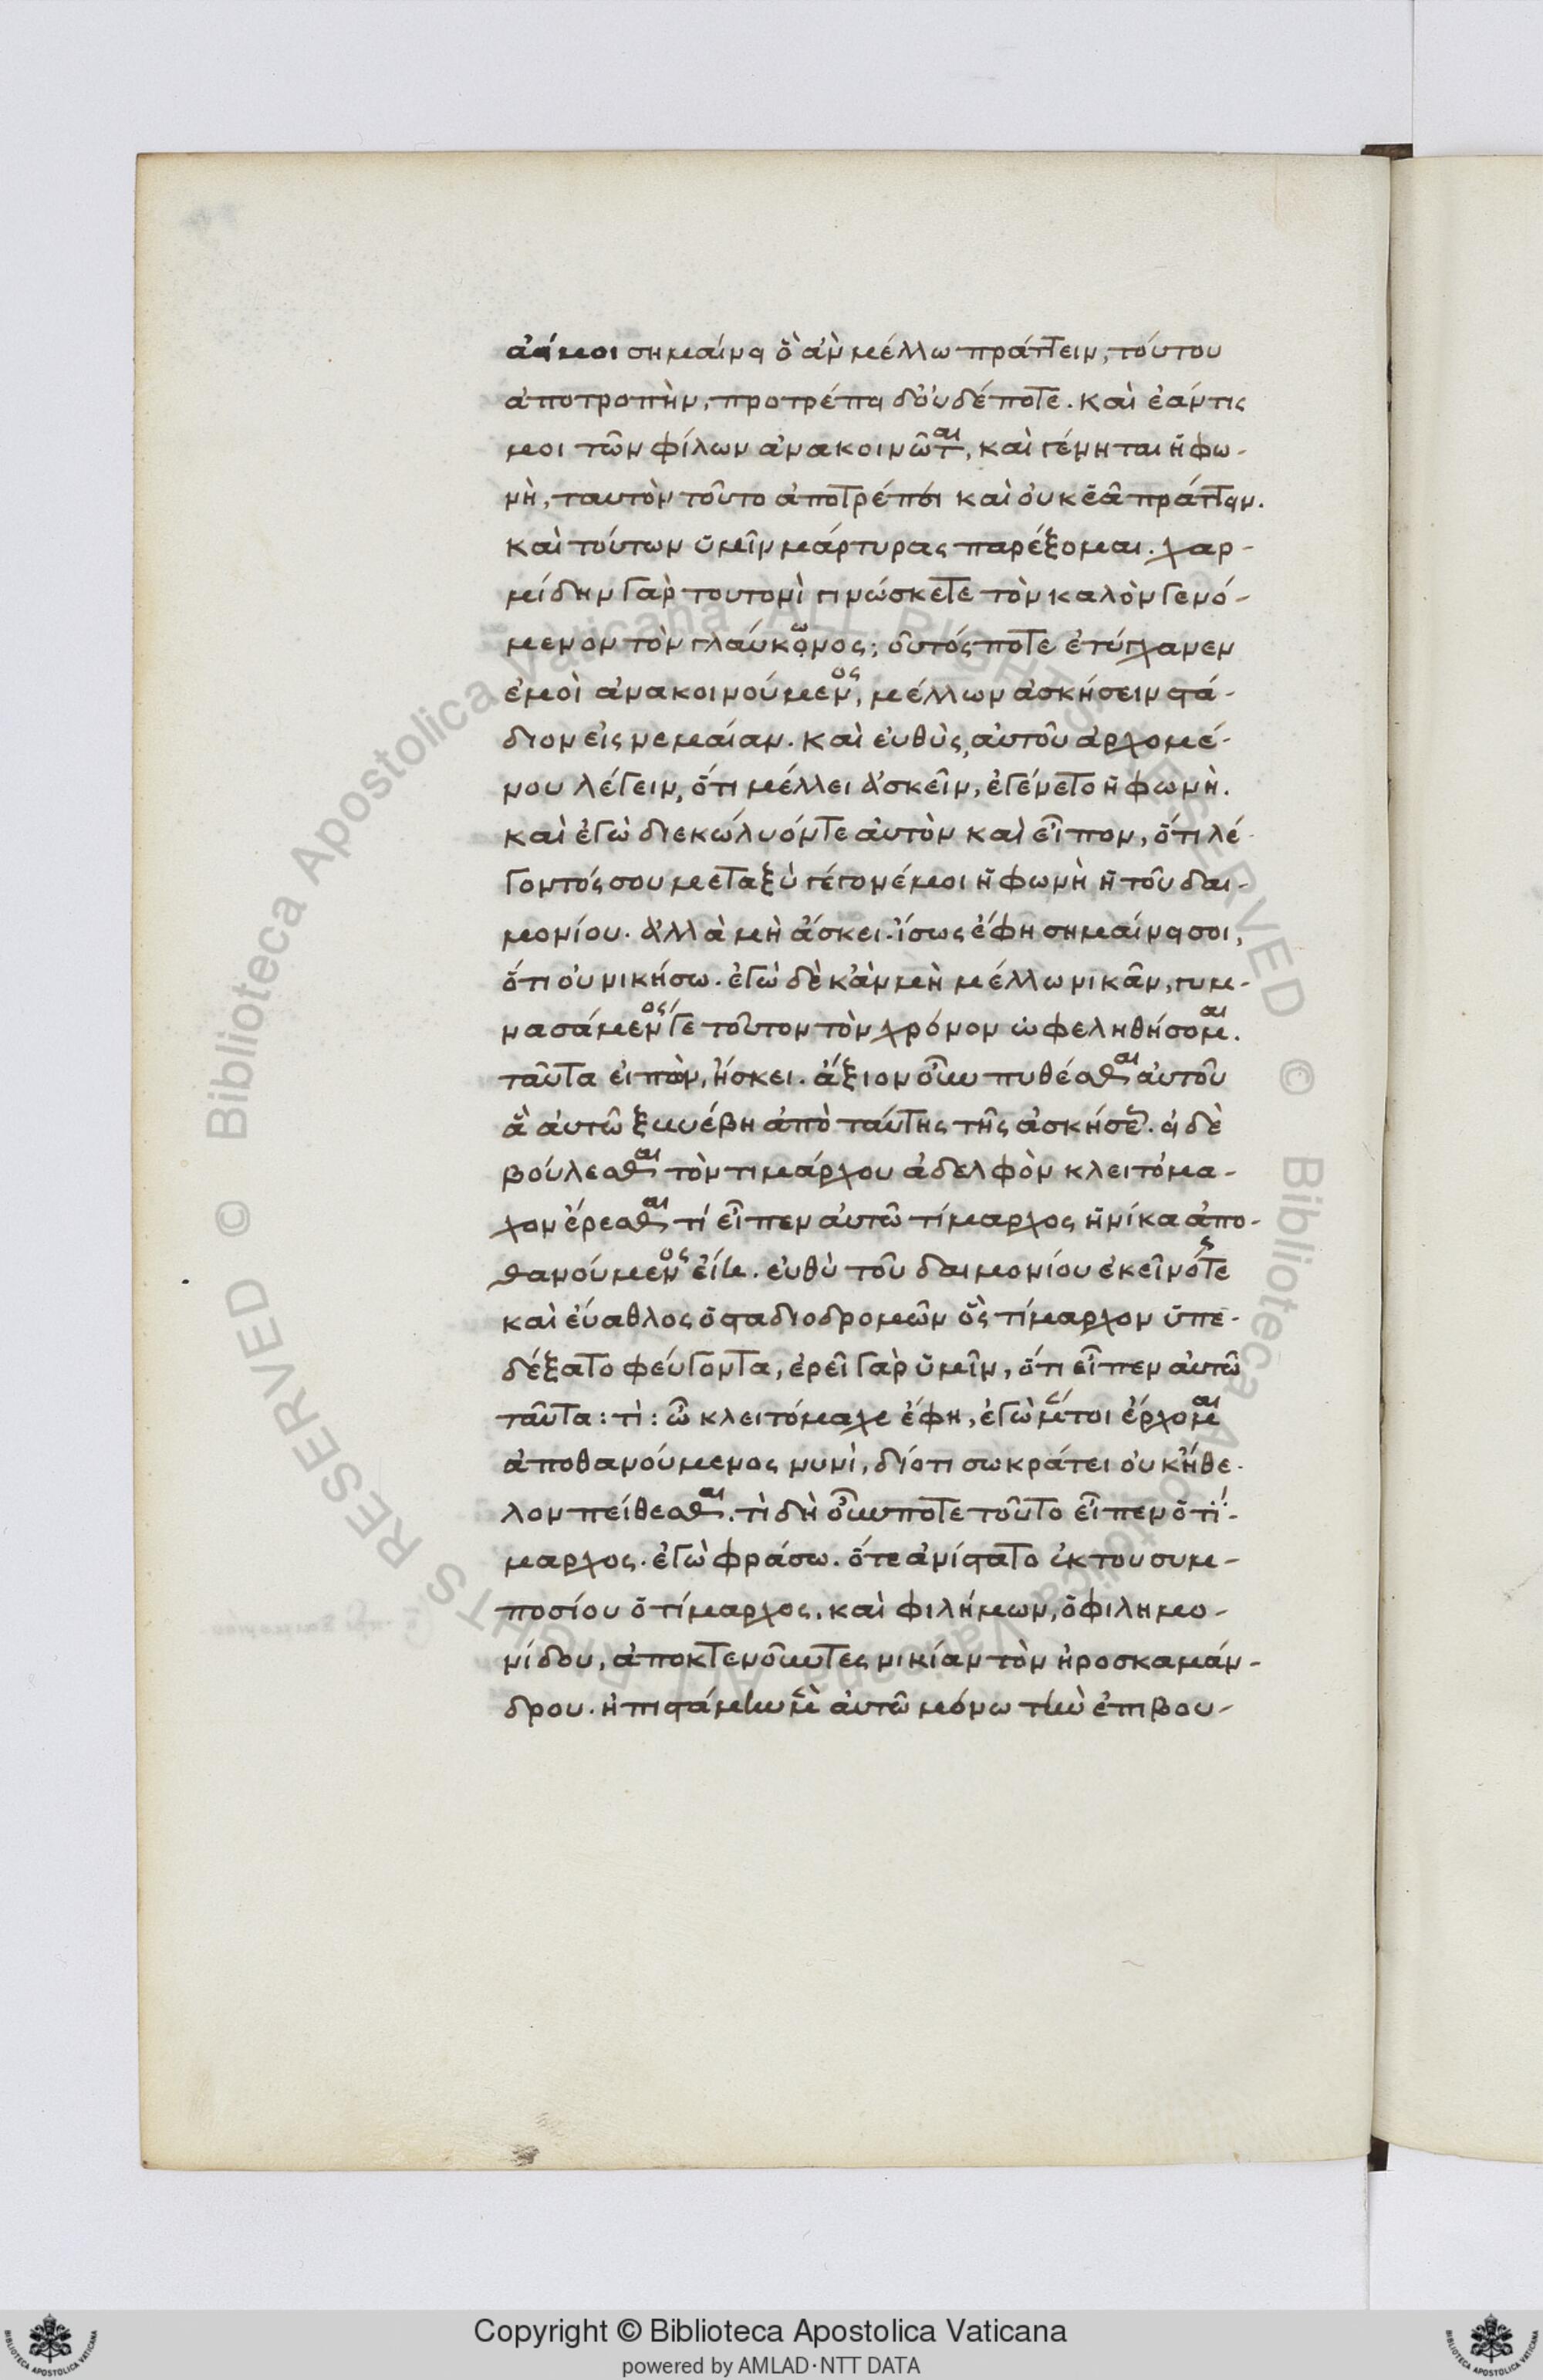 ἀεί μοι σημαίνει ὃ ἂν μέλλω πράττειν, τούτου
ἀποτροπὴν, προτρέπει δ' οὐδέποτε. καὶ ἐάν τις
μοι τῶν φίλων ἀνακοινῶται, καὶ γένηται ἡ φω-
νὴ, ταυτὸν τοῦτο ἀποτρέπει καὶ οὐκ ἐᾶ πράττειν.
καὶ τούτων ὑμῖν μάρτυρας παρέξομαι. χαρ-
μίδην γὰρ τουτονὶ γινώσκετε τὸν καλὸν γενό-
μενον τὸν γλαύκωνος; οὗτός ποτε ἐτύγχανεν
ἐμοὶ ἀνακοινούμενος, μέλλων ἀσκήσειν στά-
διον εἰς νεμαίαν. καὶ εὐθὺς, αὐτοῦ ἀρχομέ-
νου λέγειν, ὅτι μέλλει ἀσκεῖν, ἐγένετο ἡ φωνὴ.
καὶ ἐγὼ διεκώλυόν τε αὐτὸν καὶ εἶπον, ὅτι λέ-
γοντός σου μεταξὺ γέγονέ μοι ἡ φωνὴ ἡ τοῦ δαι-
μονίου. ἀλλὰ μὴ ἄσκει. ἴσως ἔφη σημαίνει σοι,
ὅτι οὐ νικήσω. ἐγὼ δὲ κἂν μὴ μέλλω νικᾶν, γυμ-
νασάμενός γε τοῦτον τὸν χρόνον ὠφεληθήσομαι.
ταῦτα εἰπὼν, ἤσκει. ἄξιον οὖν πυθέσθαι αὐτοῦ
ἃ αὐτῶ ξυνέβη ἀπὸ ταύτης τῆς ἀσκήσεως. εἰ δὲ
βούλεσθαι τὸν τιμάρχου ἀδελφὸν κλειτόμα-
χον ἔρεσθαι τί εἶπεν αὐτῶ τίμαρχος ἡνίκα ἀπο-
θανούμενος εἴη. εὐθὺ τοῦ δαιμονίου ἐκεῖνός τε
καὶ εὔαθλος ὁ σταδιοδρομῶν ὃς τίμαρχον ὑπε-
δέξατο φεύγοντα, ἐρεῖ γὰρ ὑμῖν, ὅτι εἶπεν αὐτῶ
ταῦτα: τὶ: ὦ κλειτόμαχε ἔφη, ἐγὼ μέντοι ἔρχομαι
ἀποθανούμενος νυνὶ, διότι σωκράτει οὐκ ἤθε-
λον πείθεσθαι. τὶ δὴ οὖν ποτε τοῦτο εἶπεν ὁ τί-
μαρχος. ἐγὼ φράσω. ὅτε ἀνίστατο ἐκ του συμ-
ποσίου ὁ τίμαρχος, καὶ φιλήμων, ὁ φιλημο-
νίδου, ἀποκτενοῦντες νικίαν τὸν ἡροσκαμάν-
δρου. ἠπιστάμην μὲν αὐτῶ μόνω τὴν ἐπιβου-
Copyright © Biblioteca Apostolica Vaticana
powered by AMLAD·NTT DATA